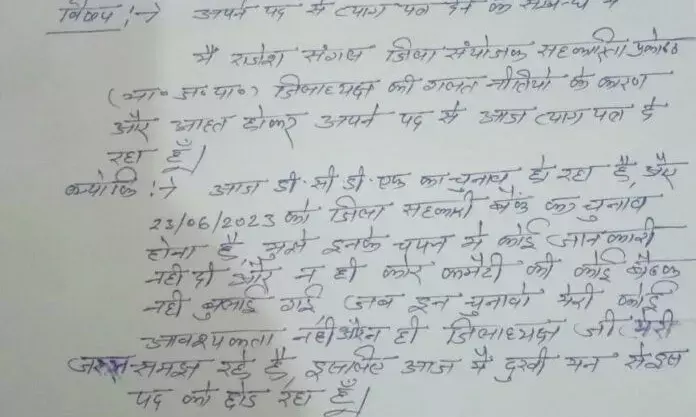 विषय :→ अपने पद से त्याग पत्र देने के सम्बन्ध में
मैं राजेश संगल जिला संयोजक सहकारिता प्रकोष्ठ
(भा० ज० पा०) जिलाध्यक्ष की गलत नीतियो के कारण
और आहत होकर अपने पद से आज त्याग पत्र दे
रहा हूँ।
क्योकि :→ आज डी.सी डी.एफ का चुनाव हो रहा है, और
23/06/2023 को जिला सहकारी बैंक का चुनाव
होना है, मुझे इनके चयन मे कोई जानकारी
नही दी और न ही कोर कमैटी की कोई बैठक
नही बुलाई गई जब इन चुनावो मेरी कोई
आवश्यकता नही और न ही जिलाध्यक्ष जी मेरी
जरूरत समझ रहे है, इसलिए आज मै दुखी मन से इस
पद को छोड रहा हूँ।